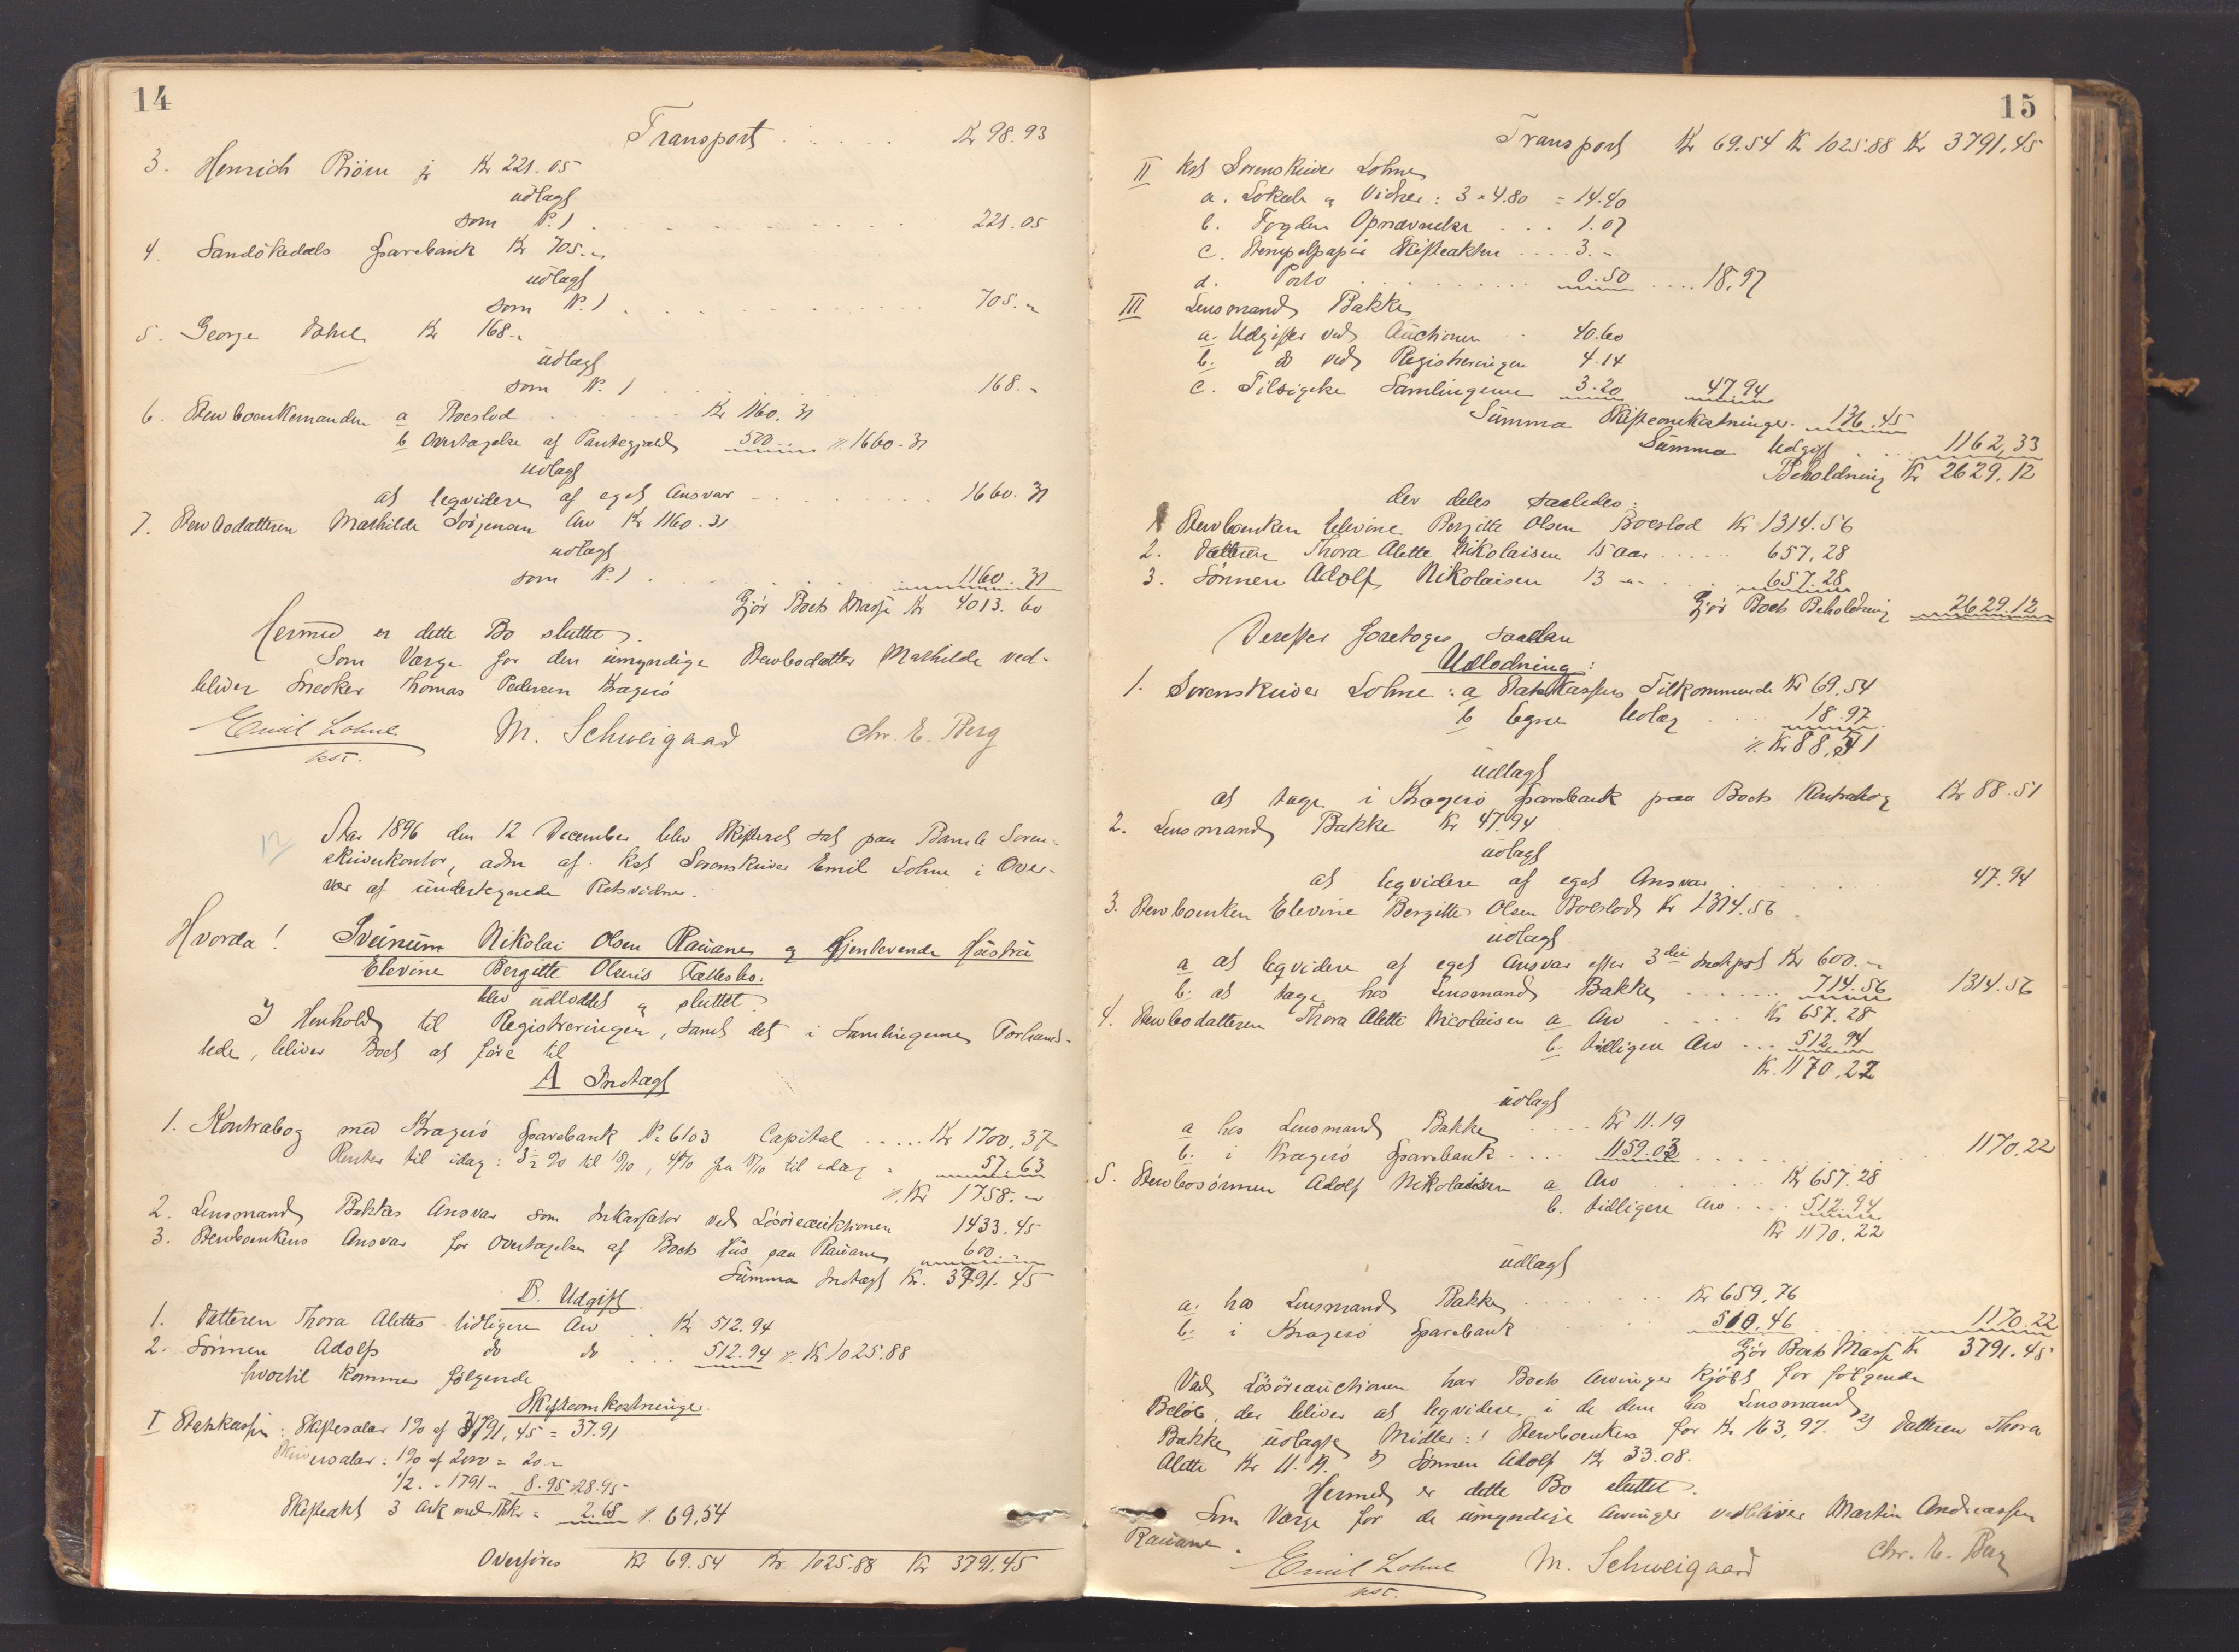 14
Transport . . . . . Kr 98.93
3. Henrich Biørn jr Kr 221.05
udlagt
som No 1 . . . . . 221.05
4. Sandökedals Sparebank Kr 705.-
udlagt
som No 1 . . . . . 705.-
5. George Kr 168.-
udlagt
som No 1 . . . . . 168.-
6. Stervboenkemanden a Boeslod . . . Kr 1160.31
b Overtagelse af Pantegjæld 500.- Kr 1660.31
udlagt
at leqvidere af eget Ansvar . . . . 1660.31
7. Stervbodatteren Mathilde Jørgensen Arv Kr 1160.31
udlagt
som No 1 . . . . . 1160.31
Gjør Boets Masse Kr 4013.60
Hermed er dette Bo sluttet.
Som Værge for den umyndige Stervbodatter Mathilde ved-
bliver Snedker Thomas Pedersen Kragerø
Emil Lohne M. Schweigaard Chr. E. Berg
kst.
12 Aar 1896 den 12 December blev Skifteret sat paa Bamle Soren-
skriverkontor, adm af kst Sorenskriver Emil Lohne i Over-
vær af undertegnede Retsvidner.
Hvorda! Sveinum Nikolai Olsen Rauane og Gjenlevende Hustru
Elevine Bergitte Olsens Fællesbo.
blev udloddet og sluttet
I Henhold til Registreringen, samt det i Samlingerne Forhand-
lede, bliver Boet at føre til
A Indtægt
1. Kontrabog med Kragerø Sparebank No 6103 Capital . . . . . Kr 1700,37
Renter til idag: 3½ % til , 4% fra til idag = 57.63
Kr 1758.-
2. Lensmand Bakkes Ansvar som Inkassator ved Løsøreauktionen 1433.45
3. Stervboenkens Ansvar for Overtagelse af Boets Hus paa Rauane 600.-
Summa Indtægt Kr. 3791.45
B. Udgift
1. Datteren Thora Alettes tidligere Arv . . Kr 512.94
2. Sønnen Adolfs do do . . . 512.94 Kr 1025.88
hvortil kommer følgende
Skifteomkostninger.
I Statskassen: Skiftesalær 1% af 3791,45 = 37.91
Skriversalær: 1% af 2000 = 20.-
1/2 . - 1791 - 8.95 28.95
Skifteakt 3 Ark med = 2.68 69.54
Overføres Kr 69.54 Kr. 1025.88 Kr 3791.45
15
Transport Kr 69.54 Kr 1025.88 Kr 3791.45
II kst Sorenskriver Lohne
a. Lokale og Vidner: 3 × 4.80 = 14.40
b. Opnævnelse . . . 1.07
c. Stempelpapir Skifteakten . . . . 3.-
d. Porto . . . . . 0.50 . . . . 18.97
III Lensmand Bakke
a. Udgifter ved Auctionen . . 40.60
b. do ved Registreringen 4.14
c. Tilsigelse Samlingerne 3.20 47.94
Summa Skifteomkostninger. 136.45
Summa Udgift . . . 1162,33
Beholdning Kr 2629.12
der deles saaledes:
1 Stervboenken Elevine Bergitte Olsen Boeslod Kr 1314.56
2. Datteren Thora Alette Nikolaisen 15 aar . . . . . 657,28
3. Sønnen Adolf Nikolaisen 13 -"- . . . . . 657.28
Gjør Boets Beholdning 2629.12
Derefter foretoges saadan
Udlodning:
1. Sorenskriver Lohne: a Statskassens Tilkommende Kr 69.54
b Egne Udlæg . . . . 18.97
Kr 88,51
udlagt
at tage i Kragerø Sparebank paa Boets Kontrabog Kr 88.51
2. Lensmand Bakke Kr 47.94
udlagt
at leqvidere af eget Ansvar . . . . . 47.94
3. Stervboenken Elevine Bergitte Olsen Boeslod Kr 1314.56
udlagt
a at leqvidere af eget Ansvar efter 3die Indtpost Kr 600.-
b. at tage hos Lensmand Bakke . . . . . 714.56 1314.56
4. Stervbodatteren Thora Alette Nicolaisen a Arv . . . . Kr 657.28
b. tidligere Arv . . . 512.94
Kr. 1170.22
udlagt
a hos Lensmand Bakke . . . . Kr 11.19
b. i Kragerø Sparebank . . . . 1159.03 . . . . . 1170.22
5. Stervbosønnen Adolf Nikolaisen a Arv . . . . . Kr 657.28
b. tidligere Arv . . . . 512.94
Kr 1170.22
udlagt
a. hos Lensmand Bakke . . . . . Kr 659.76
b. i Kragerø Sparebank . . . . . 510.46 . . . . . 1170.22
Gjør Boets Masse Kr 3791.45
Ved Løsøreauctionen har Boets Arvinger kjøbt for følgende
Beløb, der bliver at leqvidere i de dem hos Lensmand
Bakke udlagte Midler: 1 Stervboenken for Kr. 163,97. 2) Datteren Thora
Alette Kr 11.19. 3) Sønnen Adolf Kr 33.08.
Hermed er dette Bo sluttet.
Som Værge for de umyndige Arvinger vedbliver Martin Andreassen
Rauane.
Emil Lohne M. Schweigaard Chr. E. Berg
kst.